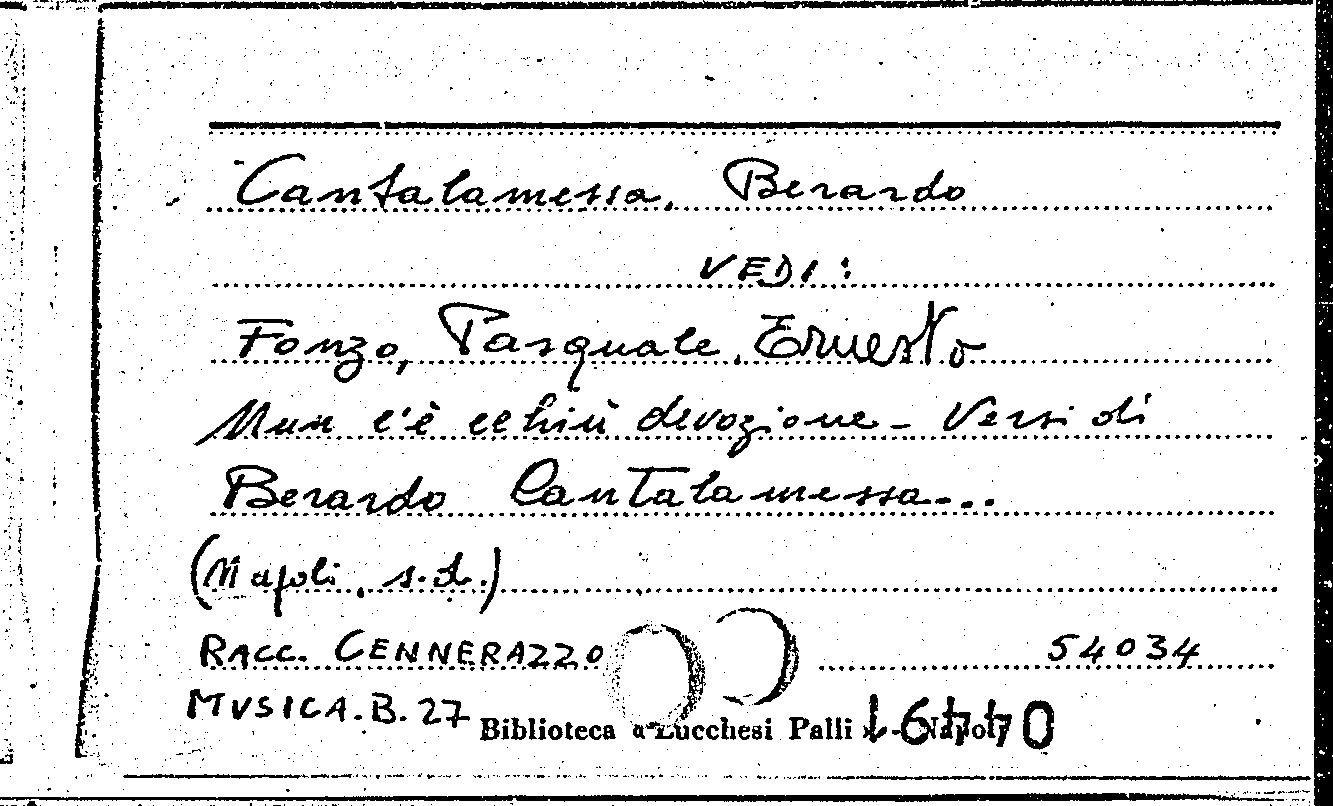 Cantalamessa, Berardo
VEDI:
Fonzo, Pasquale Ernesto
Nun c'è cchiù devozione - Versi di
Berardo Cantalamessa...
(Napoli, s.d.)
RACC. CENNERAZZO 54034
MUSICA.B.27
Biblioteca "Lucchesi Palli" - Napoli 16440